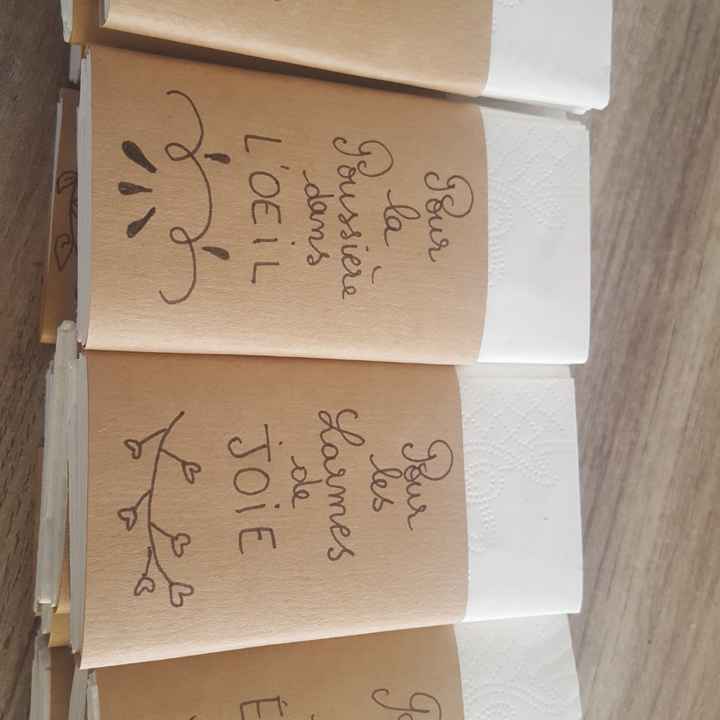 Pour
la
Poussière
dans
L'OEiL
Pour
les
Larmes
de
JOiE